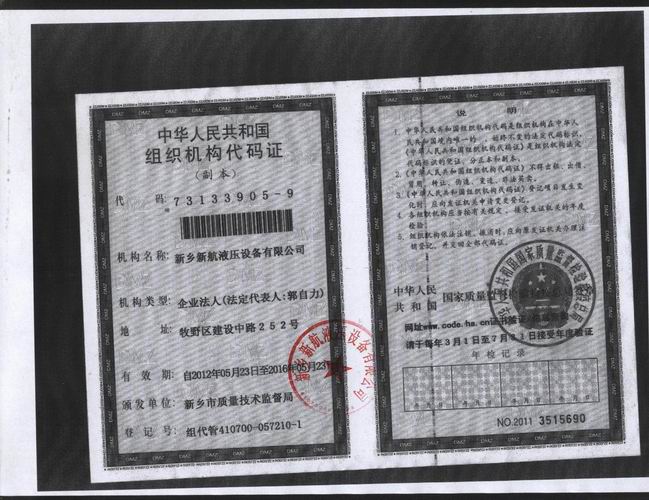 中华人民共和国
组织机构代码证
(副本)
代 码: 73133905-9
机构名称: 新乡新航液压设备有限公司
机构类型: 企业法人(法定代表人:郭自力)
地 址: 牧野区建设中路252号
有 效 期: 自2012年05月23日至2016年05月23
颁发单位: 新乡市质量技术监督局
登 记 号: 组代管410700-057210-1
新乡新航液压设备有限公司
说 明
1. 中华人民共和国组织机构代码是组织机构在中华人
民共和国境内唯一的、始终不变的法定代码标识,
《中华人民共和国组织机构代码证》是组织机构法定
代码标识的凭证,分正本和副本。
2. 《中华人民共和国组织机构代码证》不得出租、出借、
冒用、转让、伪造、变造、非法买卖。
3. 《中华人民共和国组织机构代码证》登记项目发生变
化时,应向发证机关申请变更登记。
4. 各组织机构应当按有关规定,接受发证机关的年度
检验。
5. 组织机构依法注销、撤消时,应向原发证机关办理注
销登记,并交回全部代码证。
中华人民
共和国 国家质量监督检
网址www.code.ha.cn证书验证
请于每年3月1日至7月31日接受年度验证
年检记录
年 月 日 年 月 日 年 月 日 年 月 日
NO.2011 3515690